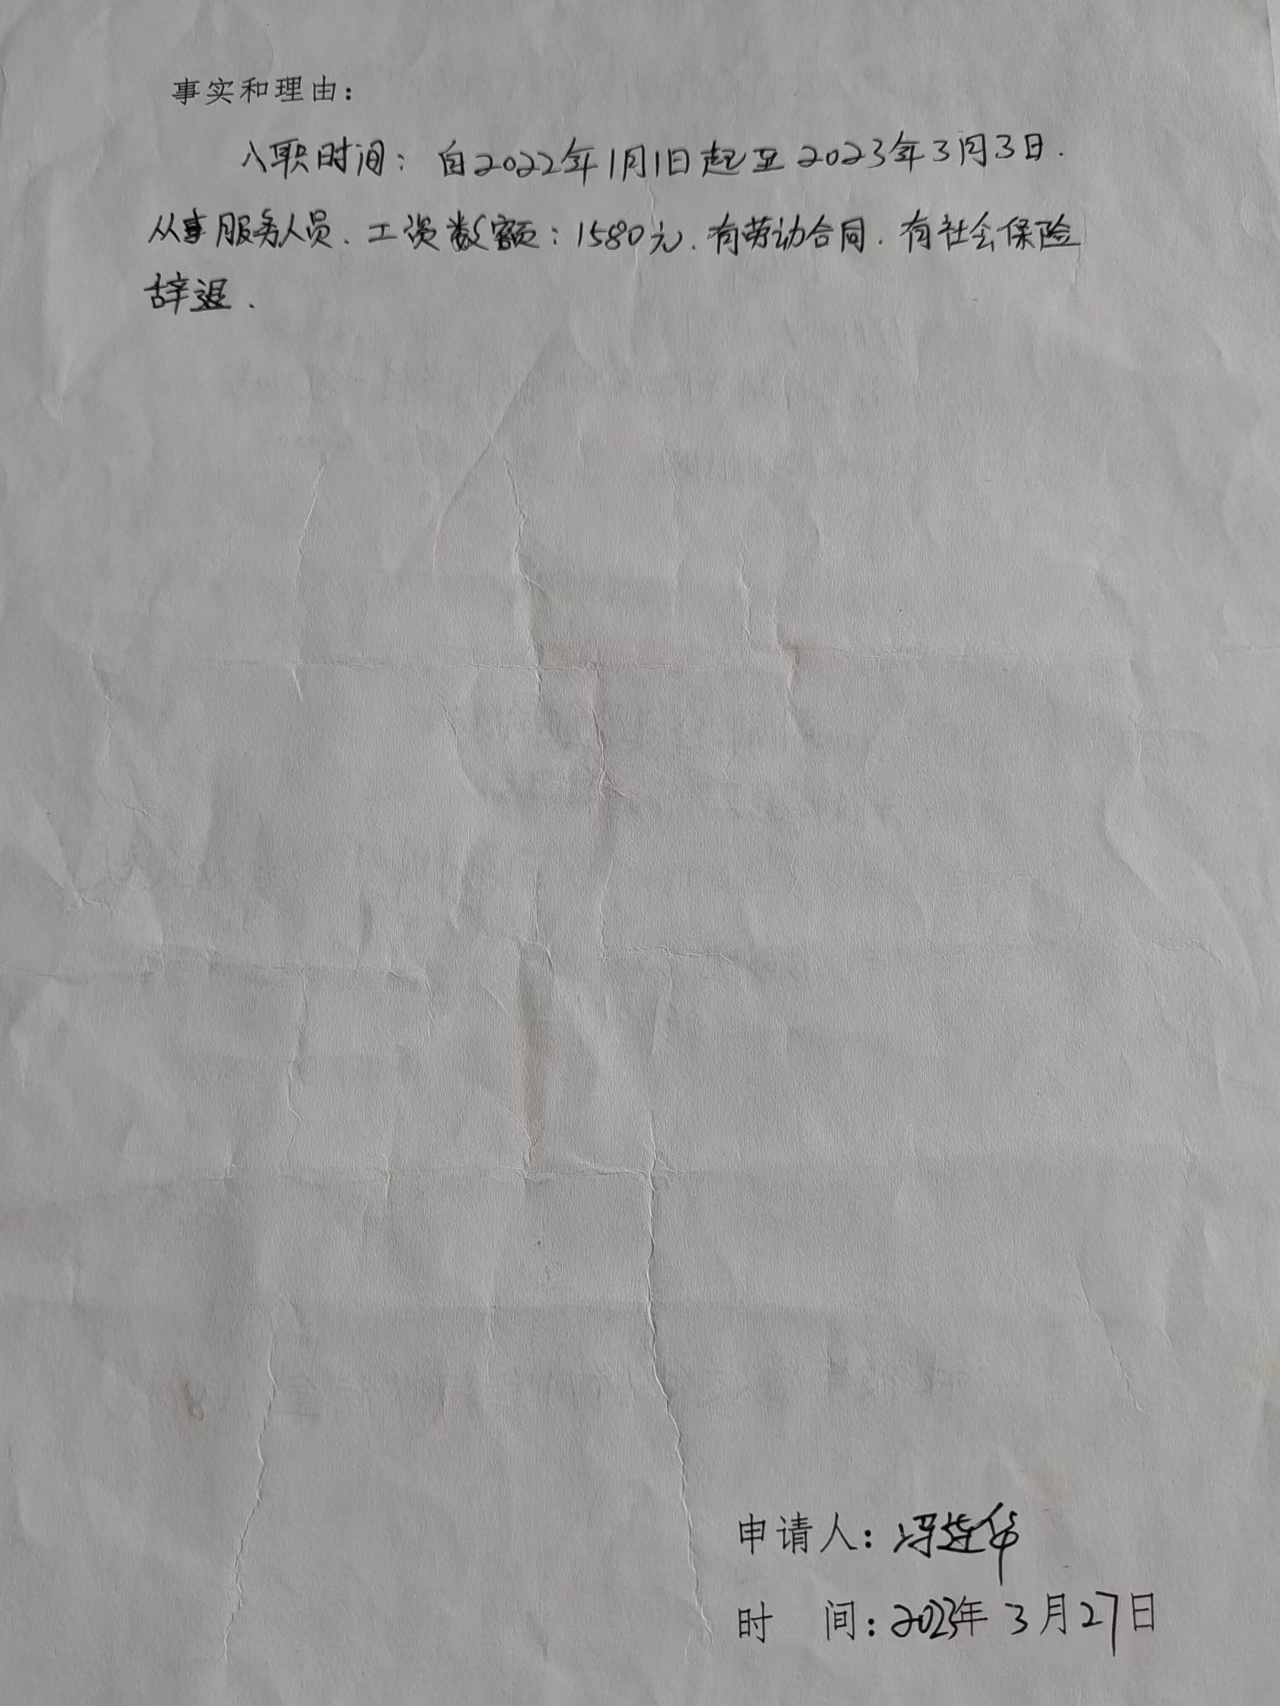 事实和理由：
入职时间：自2022年1月1日起至2023年3月3日.
从事服务人员、工资数额：1580元、有劳动合同、有社会保险
辞退.
申请人：冯莲华
时 间：2023年3月27日